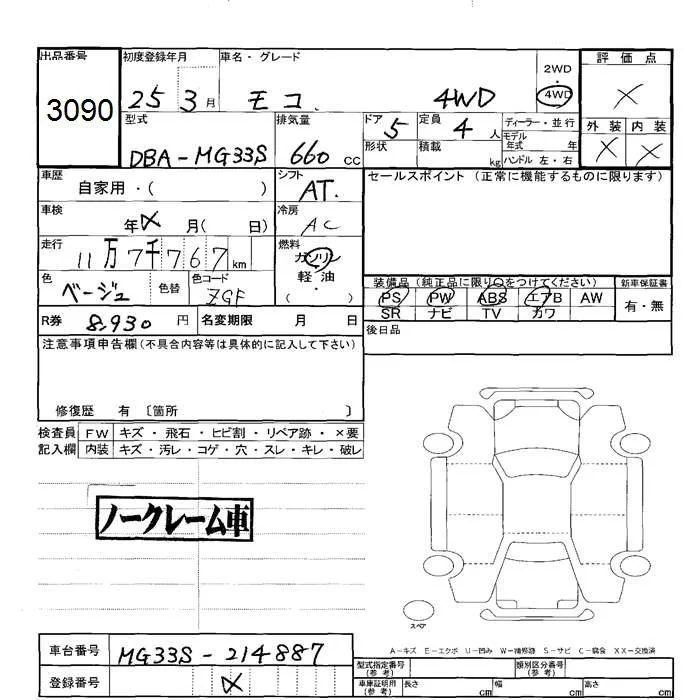 出品番号 初度登録年月 車名・グレード 2WD・4WD 評価点
3090 25 3月 モコ 4WD ×
型式 排気量 ドア 5 定員 4人 ディーラー・並行 外装 内装
DBA-MG33S 660cc 形状 積載 kg モデル年式 年 × ×
ハンドル 左・右
車歴 自家用・( ) シフト AT. セールスポイント (正常に機能するものに限ります)
車検 年 × 月( 日) 冷房 AC
走行 11万7千767km 燃料 ガソリン
軽・油
( )
色 ベージュ 色替 色コード ZGF
装備品(純正品に限り○をつけてください) 新車保証書
PS PW ABS エアB AW 有・無
SR ナビ TV カワ
R券 8,930円 名変期限 月 日
後日品
注意事項申告欄(不具合内容等は具体的に記入して下さい)
修復歴 有 〔箇所 〕
検査員 FW キズ・飛石・ヒビ割・リペア跡・×要
記入欄 内装 キズ・汚レ・コゲ・穴・スレ・キレ・破レ
ノークレーム車
スペア
A-キズ E-エクボ U-凹み W-補修跡 S-サビ C-腐食 XX-交換済
車台番号 MG33S-214887
登録番号 ×
型式指定番号(参考) 類別区分番号(参考)
車庫証明用(参考) 長さ cm 幅 cm 高さ cm